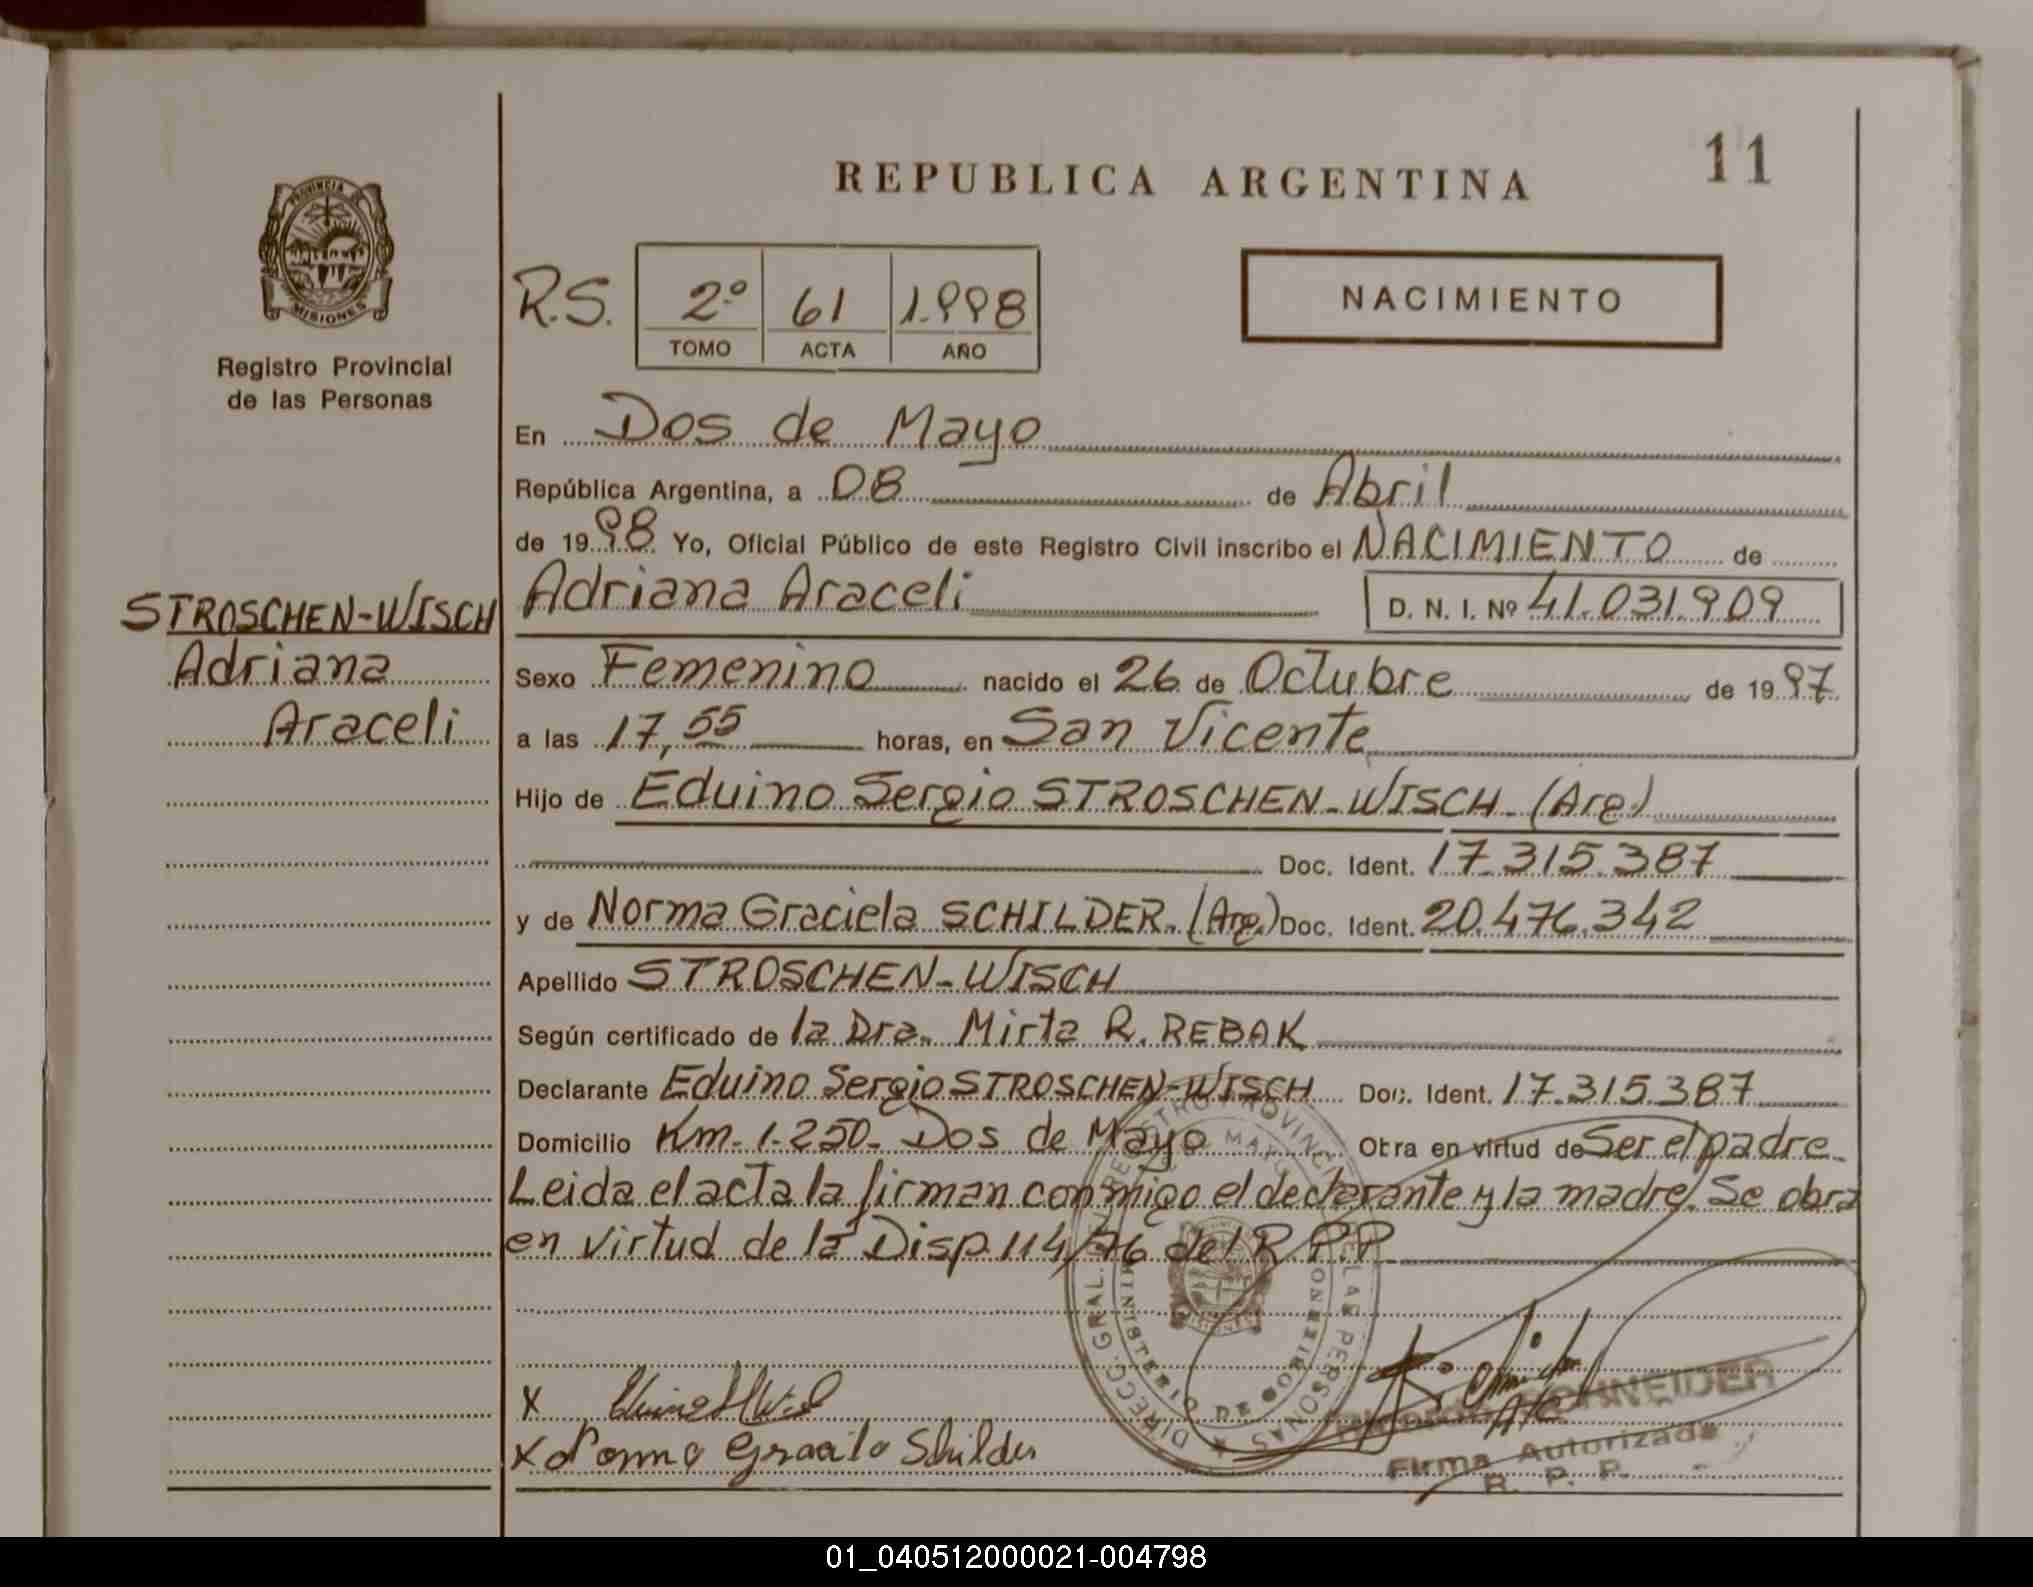 11
REPUBLICA ARGENTINA
PROVINCIA DE
MISIONES
Registro Provincial
de las Personas
R.S. 2º 61 1.998
TOMO ACTA AÑO
NACIMIENTO
En Dos de Mayo
República Argentina, a 08 de Abril
de 1998 Yo, Oficial Público de este Registro Civil inscribo el NACIMIENTO de
STROSCHEN-WISCH
Adriana
Araceli
Adriana Araceli D. N. I. Nº 41.031.909
Sexo Femenino nacido el 26 de Octubre de 1997
a las 17,55 horas, en San Vicente
Hijo de Eduino Sergio STROSCHEN-WISCH-(Arg.)
Doc. Ident. 17.315.387
y de Norma Graciela SCHILDER.(Arg.) Doc. Ident. 20.476.342
Apellido STROSCHEN-WISCH
Según certificado de la Dra. Mirta R. REBAK
Declarante Eduino Sergio STROSCHEN-WISCH Doc. Ident. 17.315.387
Domicilio Km. 1.250- Dos de Mayo Obra en virtud de Ser el padre.
Leida el acta la firman conmigo el declarante y la madre. Se obra
en virtud de la Disp. 114/76 del R.P.P
DIRECC. GRAL. DEL REGISTRO PROVINCIAL DE LAS PERSONAS
MINISTERIO DE GOBIERNO
X
X Norma Graciela Schilder
SCHNEIDER
Firma Autorizada
R. P. P.
01_040512000021-004798